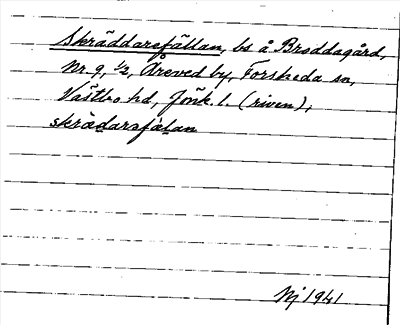 Skräddarefällan, bs å Broddagård,
Nr 9, ½, Åreved by, Forsheda sn,
Västbo hd, Jönk. l. (riven),
skrädarafälan
Nj 1941